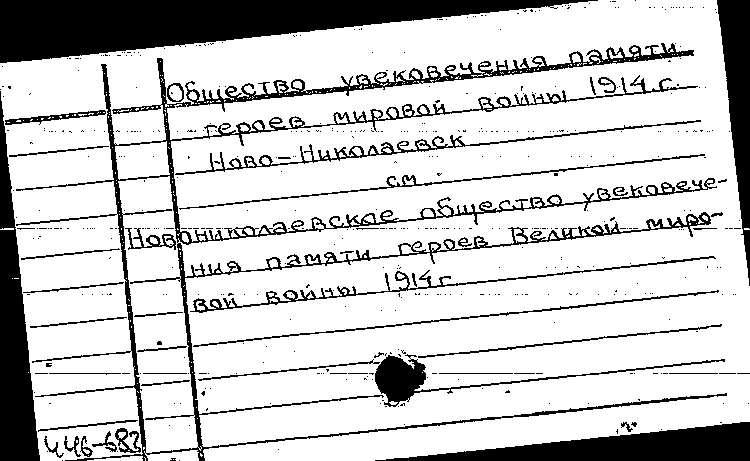 Общество увековечения памяти
героев мировой войны 1914 г.
Ново-Николаевск
см.
Новониколаевское общество увековече-
ния памяти героев Великой миро-
вой войны 1914 г
446-682